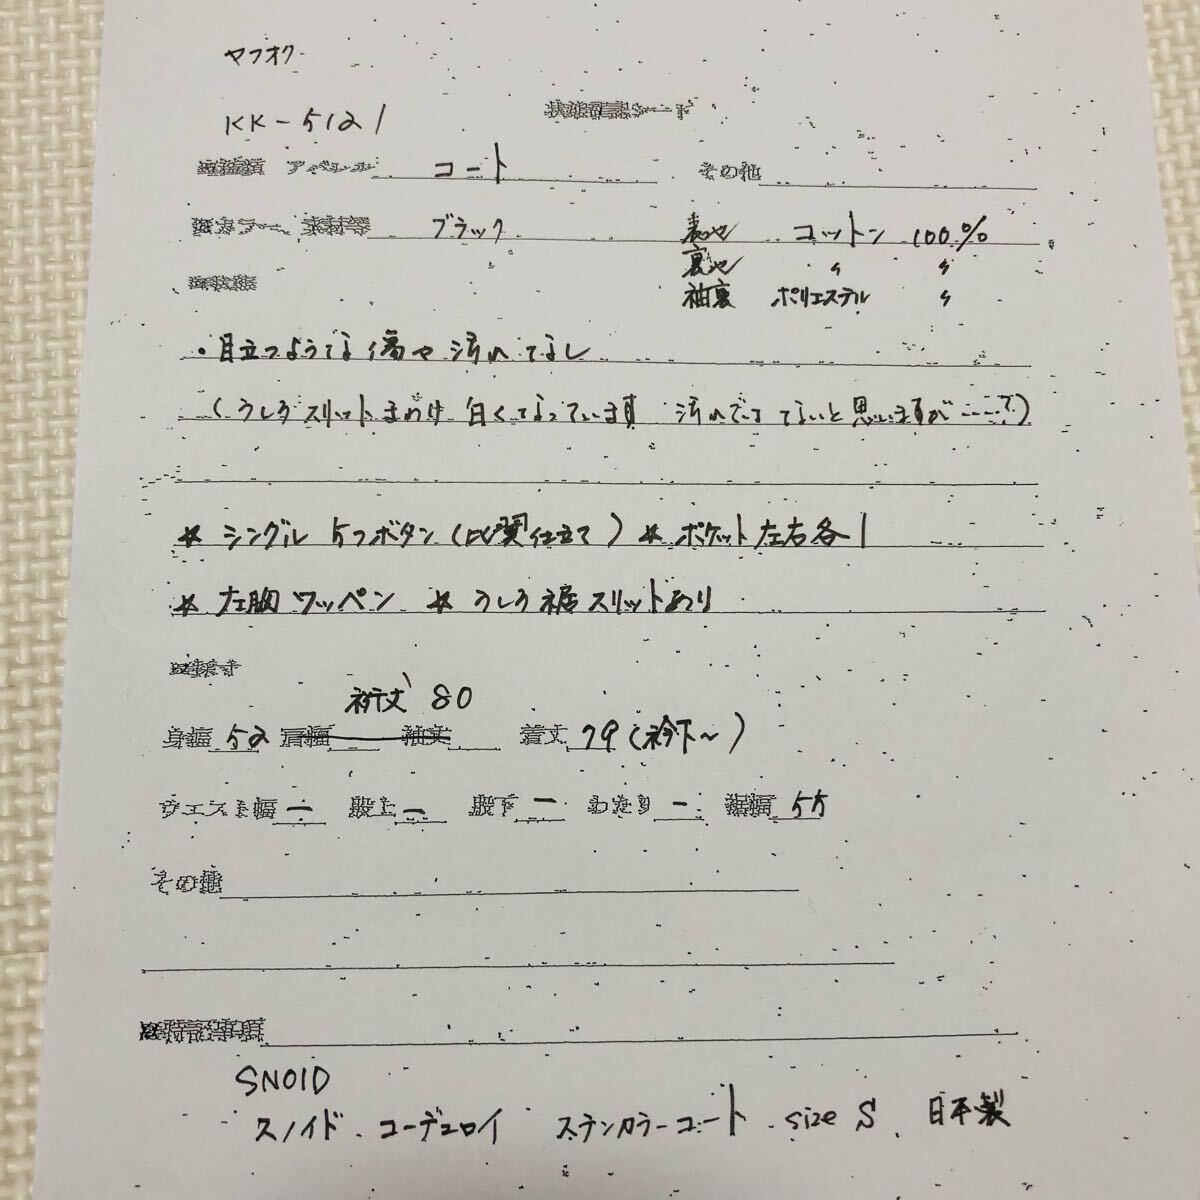 ヤフオク
KK-5121
状態確認シート
アパレル コート その他
カラー、素材等 ブラック 表地 コットン 100%
裏地 〃 〃
袖裏 ポリエステル 〃
・目立つような傷や汚れなし
(うしろスリットまわり 白くなっています 汚れではないと思いますが……?)
* シングル 5つボタン(比翼仕立て) * ポケット左右各1
* 左胸ワッペン * うしろ裾スリットあり
裄丈 80
身幅 52 肩幅 袖丈 着丈 79(衿下~)
ウエスト幅 ー 股上 ー 股下 ー わたり ー 裾幅 55
その他
※特記事項
SNOID
スノイド コーデュロイ ステンカラーコート size S 日本製